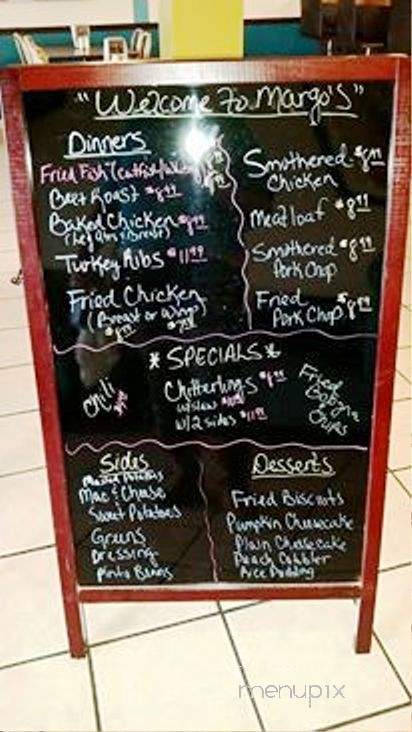 "Welcome to Margo's"
Dinners
Fried Fish (catfish/
Beef Roast $8.99
Baked Chicken $8.99
(leg qtrs & Breast)
Turkey Ribs $11.99
Fried Chicken
(Breast or Wings)
$8.99 $7.99
Smothered $8.99
Chicken
Meatloaf $8.99
Smothered $8.99
Pork Chop
Fried $8.99
Pork Chop
* SPECIALS *
Chili
Chitterlings
w/slaw
w/2 sides $11.99
Fried
Bologna
Chips
Sides
Mashed Potatoes
Mac & Cheese
Sweet Potatoes
Greens
Dressing
Pinto Beans
Desserts
Fried Biscuits
Pumpkin Cheesecake
Plain Cheesecake
Peach Cobbler
Rice Pudding
menupix